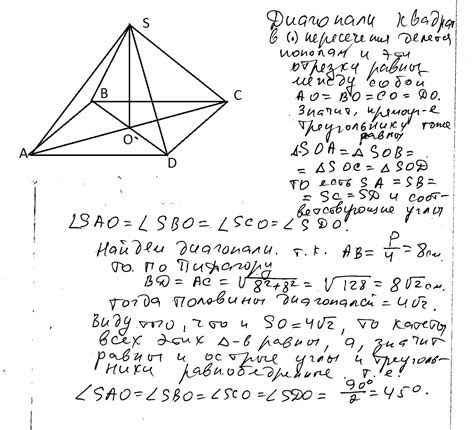 S
Диагонали квадрата
в (.) пересечения делятся
B
пополам и эти
отрезки равны
C
между собой
AO = BO = CO = DO.
O
Значит, прямоуг-е
треугольники тоже
равны
A
D
△SOA = △SOB =
= △SOC = △SOD
то есть SA = SB =
= SC = SD и соот-
ветствующие углы
∠SAO = ∠SBO = ∠SCO = ∠SDO.
Найдем диагонали. т.к. AB = P/4 = 8см.
то по Пифагору
BD = AC = √8²+8² = √128 = 8√2 см.
тогда половины диагоналей = 4√2.
Ввиду того, что и SO = 4√2, то катеты
всех этих △-в равны, а, значит
равны и острые углы и треуголь-
ники равнобедренные т.е.
∠SAO = ∠SBO = ∠SCO = ∠SDO = 90°/2 = 45°.